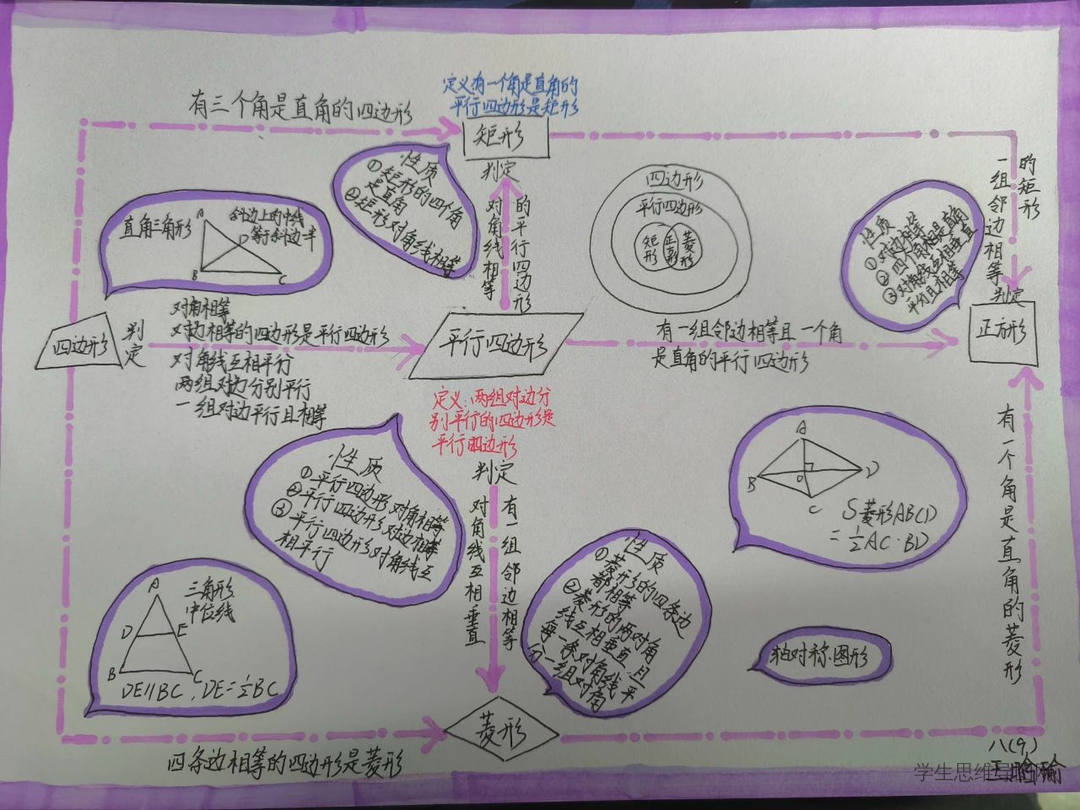 定义有一个角是直角的
平行四边形是矩形
有三个角是直角的四边形
矩形
判定
对角线相等
的平行四边形
性质
①矩形的四个角
是直角
②矩形对角线相等
直角三角形
斜边上的中线
等于斜边一半
A
D
B
C
四边形
平行四边形
矩形
正方形
菱形
一组邻边相等
的矩形
判定
性质
①对边相等
②四个角都是直角
③对角线互相垂直
平分且相等
四边形
判定
对角相等
对边相等的四边形是平行四边形
对角线互相平行
两组对边分别平行
一组对边平行且相等
平行四边形
有一组邻边相等且一个角
是直角的平行四边形
正方形
定义:两组对边分
别平行的四边形是
平行四边形
判定
对角线互相垂直
有一组邻边相等
性质
①平行四边形对角相等
②平行四边形对边相等
③平行四边形对角线互
相平行
A
B
O
D
C
S菱形ABCD
=½AC·BD
有一个角是直角的菱形
三角形
中位线
A
D
E
B
C
DE∥BC,DE=½BC
性质
①菱形的四条边
都相等
②菱形的两对角
线互相垂直且
每一条对角线平
分一组对角
轴对称图形
菱形
四条边相等的四边形是菱形
八(9)
学生思维导图